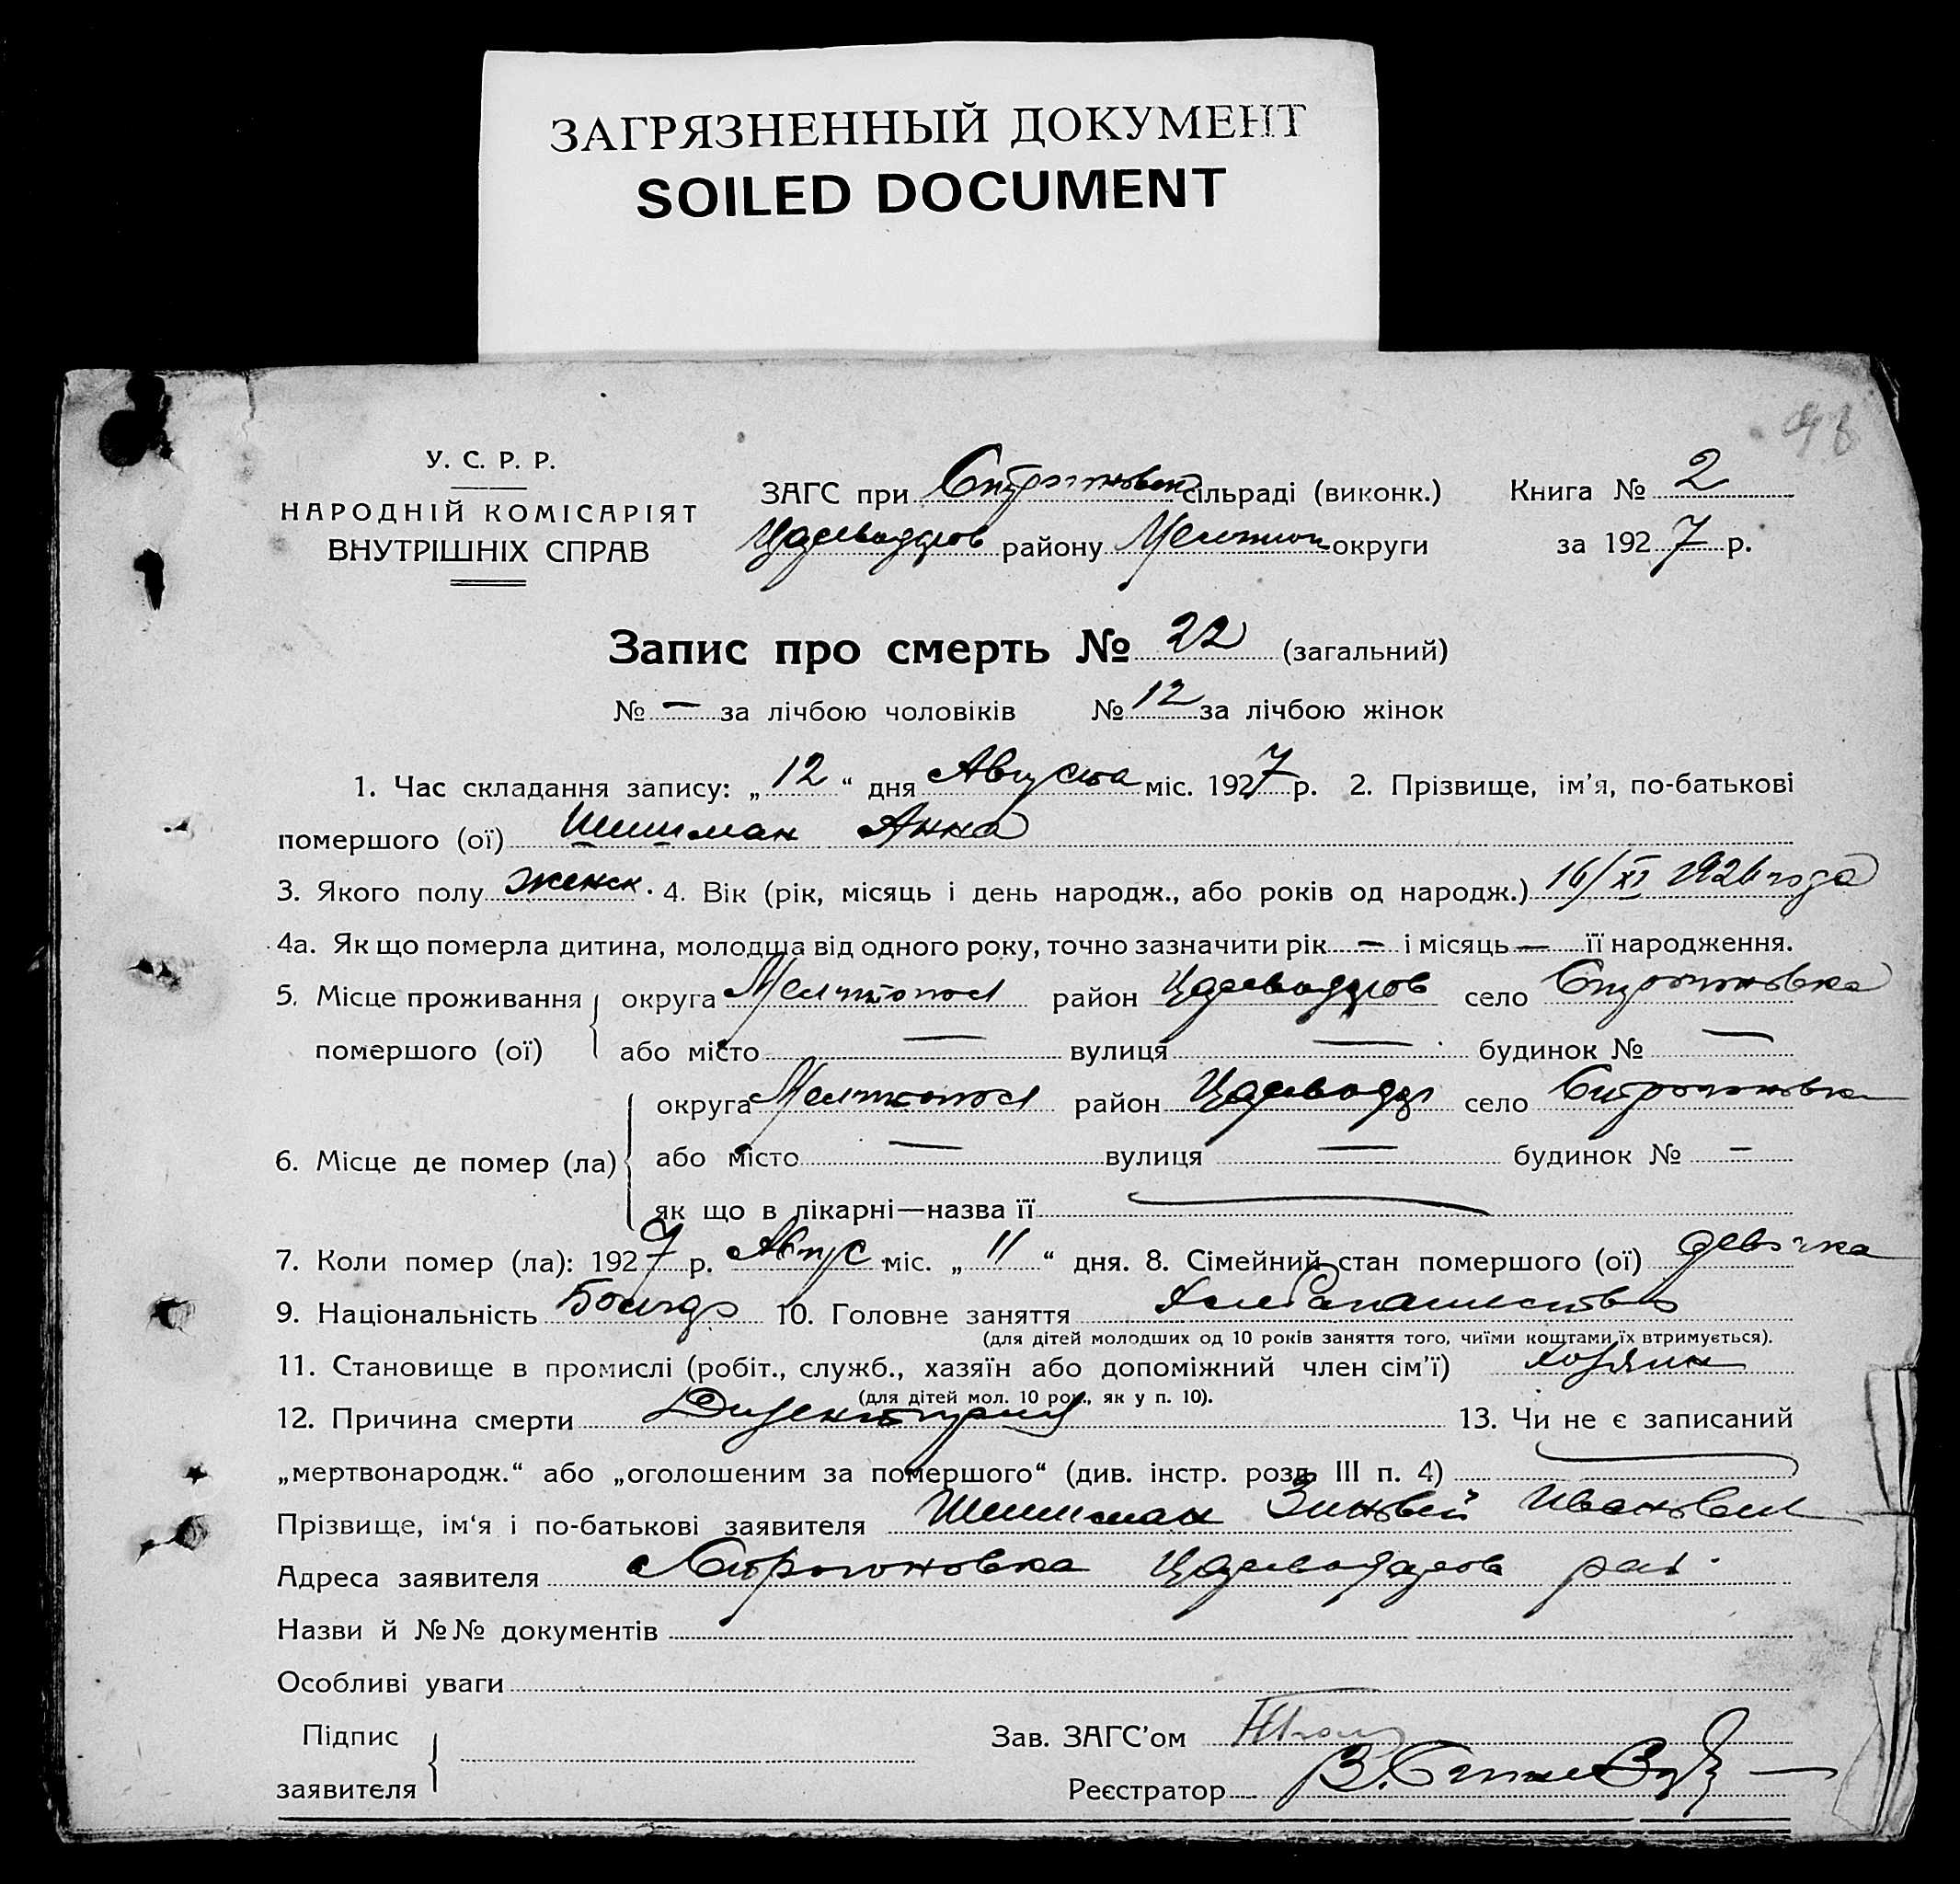 ЗАГРЯЗНЕННЫЙ ДОКУМЕНТ
SOILED DOCUMENT
У. С. Р. Р.
НАРОДНІЙ КОМІСАРІЯТ
ВНУТРІШНІХ СПРАВ
ЗАГС при сільраді (виконк.) Книга № 2
району округи за 1927 р.
Запис про смерть № 22 (загальний)
№ — за лічбою чоловіків № 12 за лічбою жінок
1. Час складання запису: „12“ дня Августа міс. 1927 р. 2. Прізвище, ім’я, по-батькові
помершого (ої) Шишман Анна
3. Якого полу женск. 4. Вік (рік, місяць і день народж., або років од народж.) 16/XI 1926 года
4а. Як що померла дитина, молодша від одного року, точно зазначити рік — і місяць — її народження.
5. Місце проживання округа Мелитопол район село
помершого (ої) або місто — вулиця — будинок № —
округа Мелитопол район село
6. Місце де помер (ла) або місто — вулиця — будинок № —
як що в лікарні—назва її —
7. Коли помер (ла): 1927 р. Авгус міс. „11“ дня. 8. Сімейний стан помершого (ої) девочка
9. Національність 10. Головне заняття Хлебопашество
(для дітей молодших од 10 років заняття того, чиїми коштами їх втримується).
11. Становище в промислі (робіт., служб., хазяїн або допоміжний член сім’ї) хозяин
(для дітей мол. 10 рок., як у п. 10).
12. Причина смерти Дизентирия 13. Чи не є записаний
„мертвонародж.“ або „оголошеним за помершого“ (див. інстр. розд. III п. 4) —
Прізвище, ім‘я і по-батькові заявителя Шишман Зиновей Иванович
Адреса заявителя рай.
Назви й №№ документів
Особливі уваги
Підпис
заявителя
Зав. ЗАГС’ом
Реєстратор